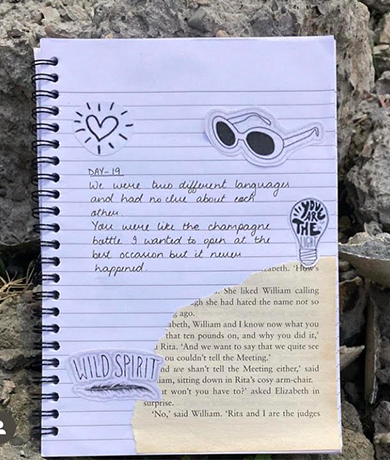 DAY-19.
We were two different languages
and had no clue about each
other.
You were like the champagne
bottle I wanted to open at the
best occasion but it never
happened.
YOU
ARE
THE
LIGHT
WILD SPIRIT
abeth. 'How's
She liked William calling
gh she had hated the name not so
ng ago.
abeth, William and I know now what you
that ten pounds on, and why you did it,'
Rita. 'And we want to say that we quite see
ou couldn't tell the Meeting.'
nd we shan't tell the Meeting either,' said
iam, sitting down in Rita's cosy arm-chair.
t won't you have to?' asked Elizabeth in
surprise.
'No,' said William. 'Rita and I are the judges